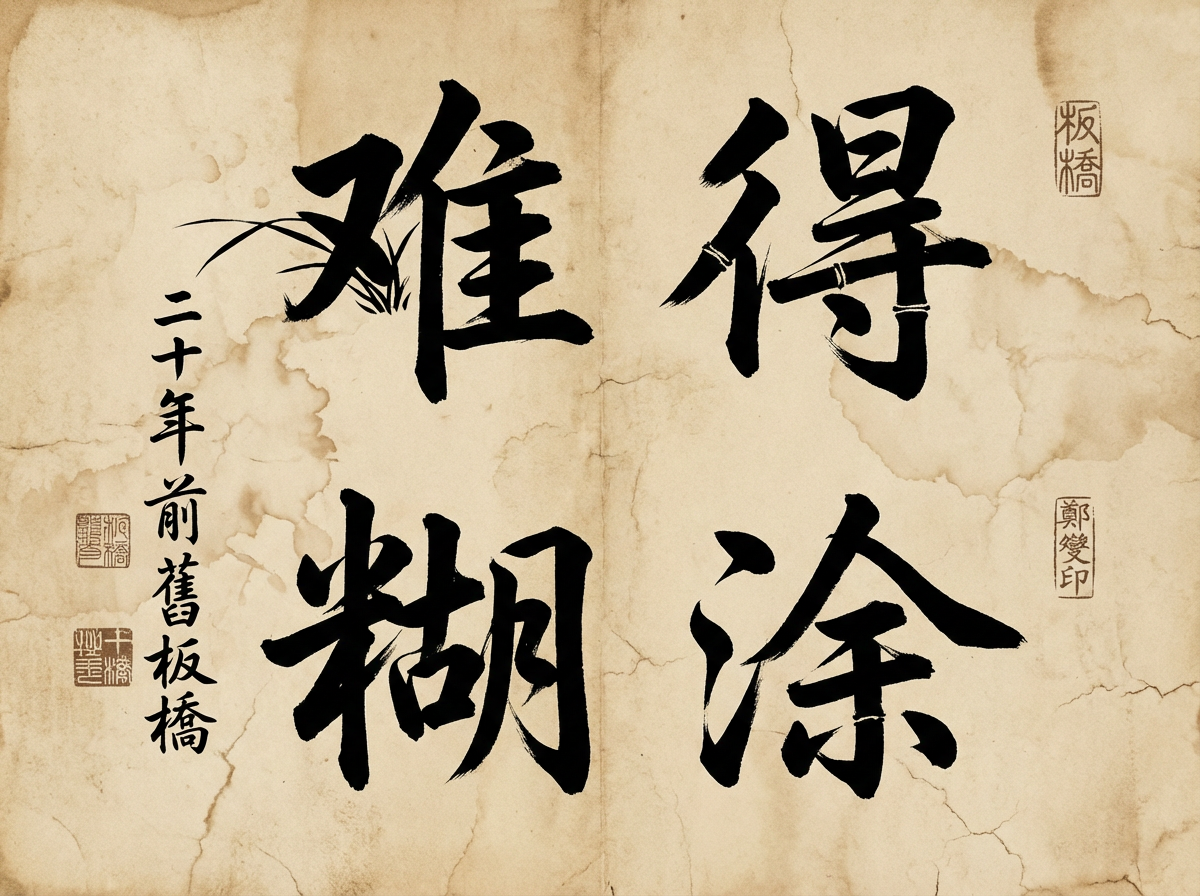 难得
糊涂
二十年前舊板橋
板橋
鄭燮印